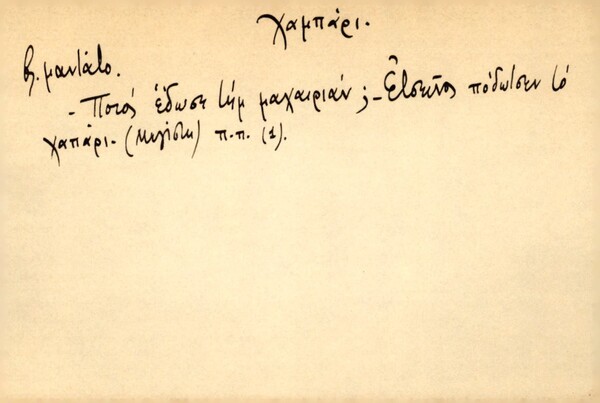 χαμπάρι.
βλ. μαντάτο.
- Ποιός ἔδωσε τὴμ μαχαιριάν; - Ἐτσεῖνος πὄδωτσεν τὸ
χαπάρι. (Μεγίστη) π.π. (1).